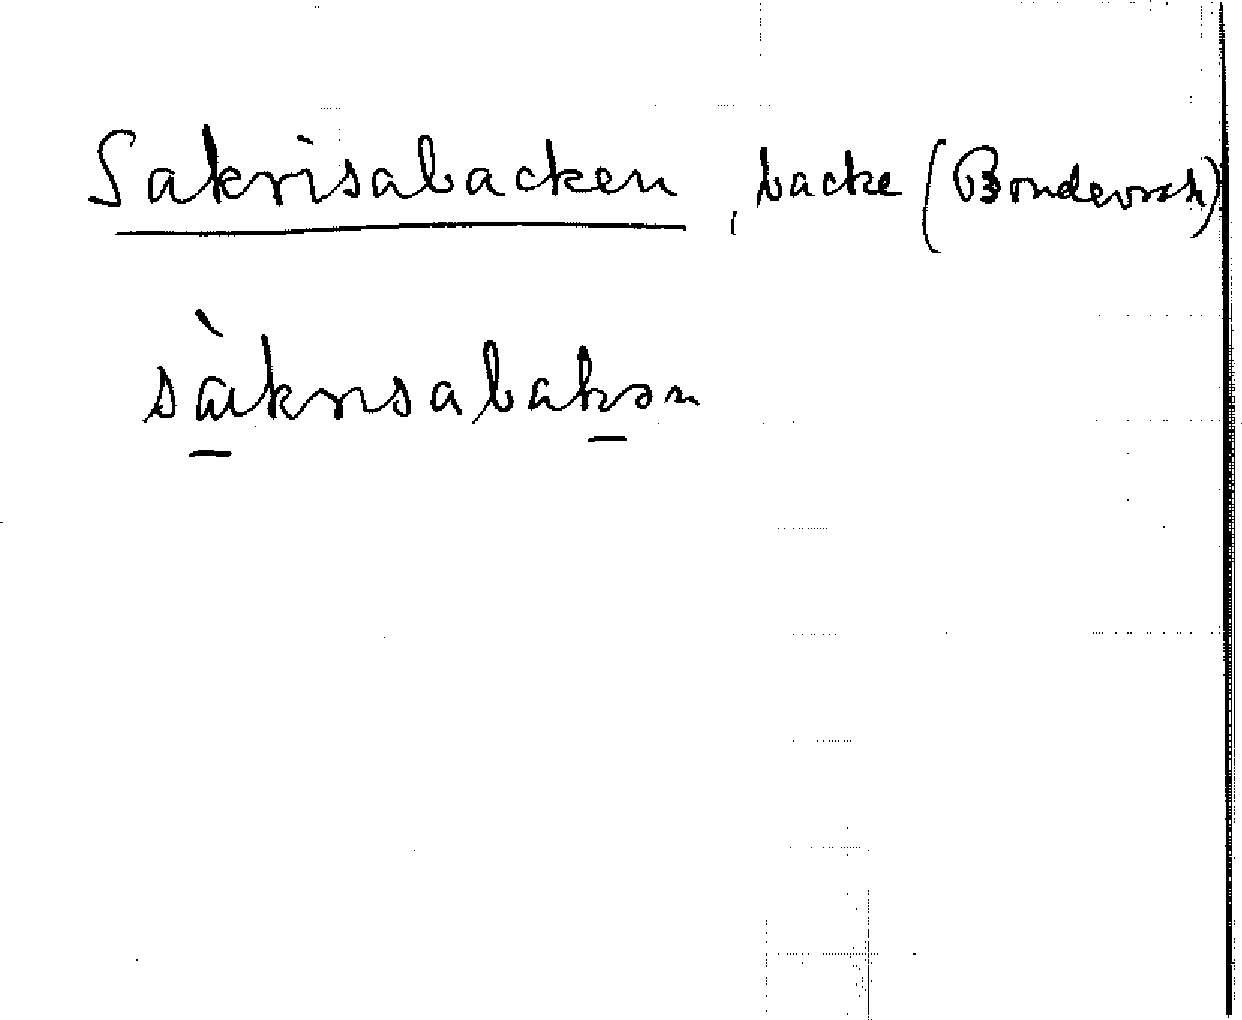 Sakrisabacken, backe (Bondevrak)
sàkrisabakən